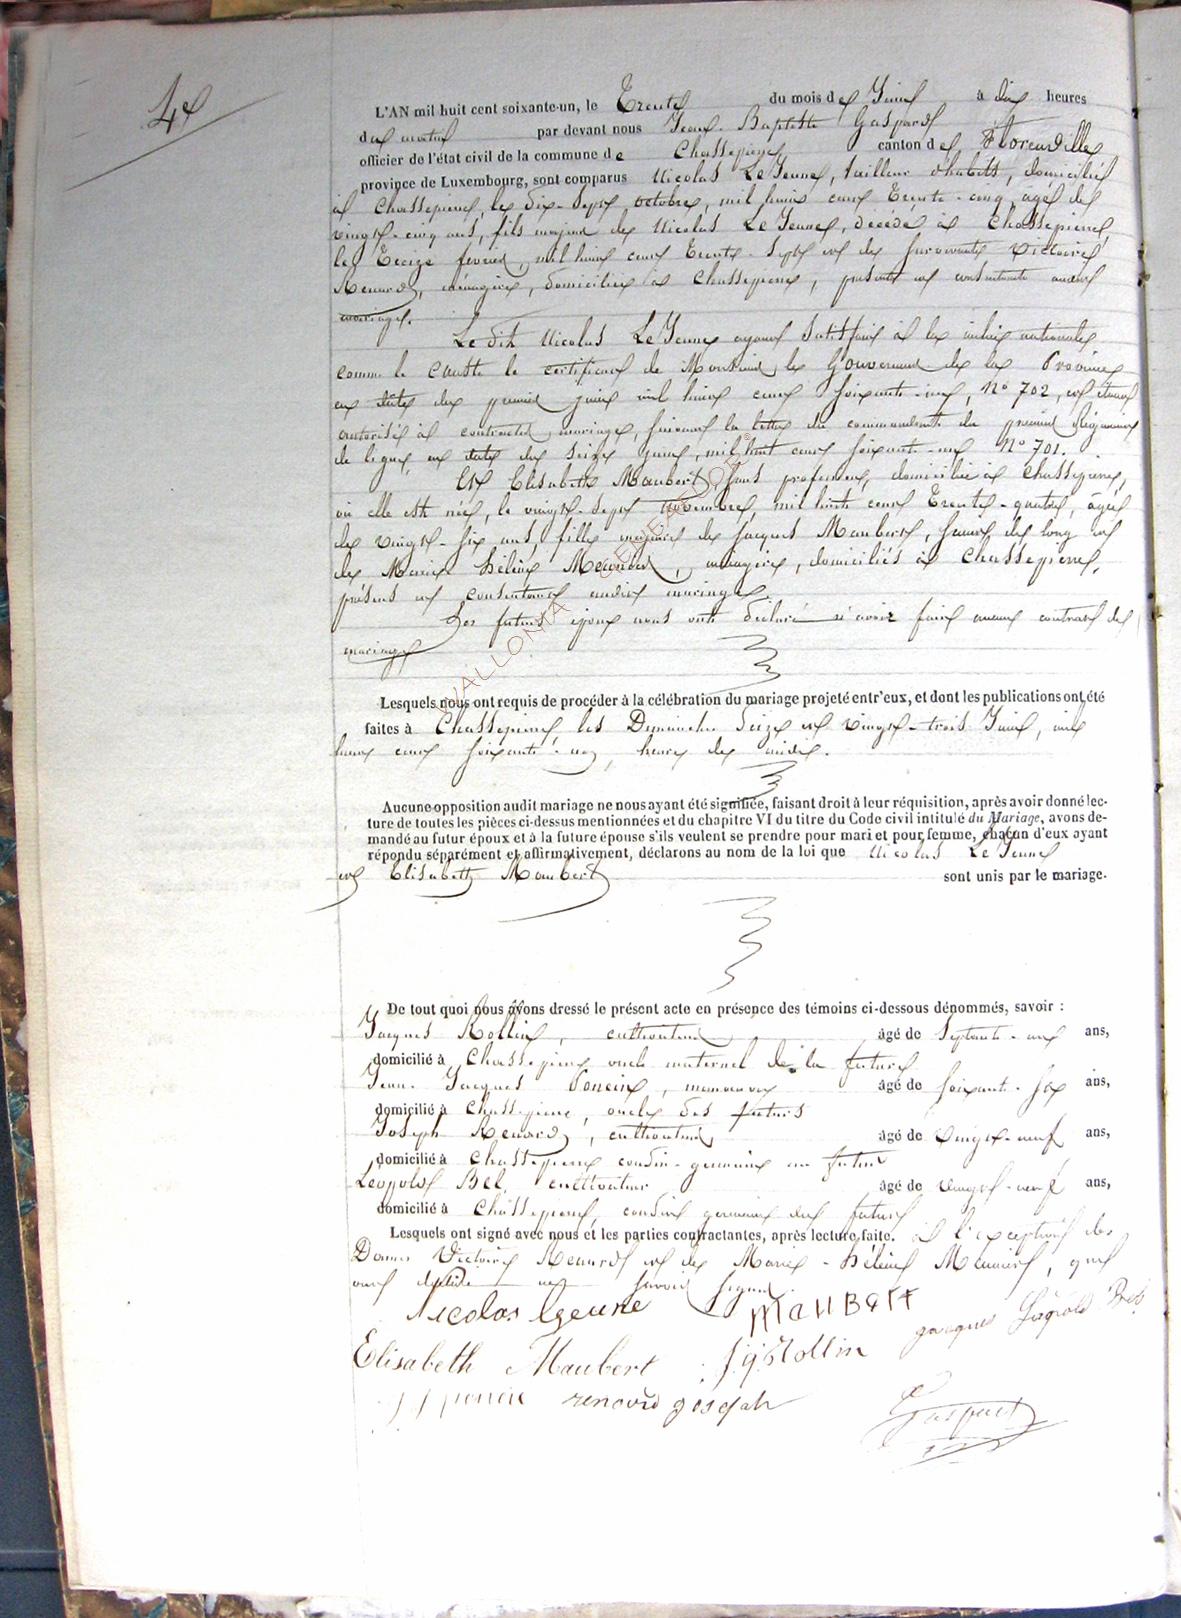 4e
L'AN mil huit cent soixante-un, le Trente du mois de Juin à dix heures
du matin par devant nous Jean-Baptiste Gaspard
officier de l'état civil de la commune de Chassepierre canton de Florenville
province de Luxembourg, sont comparus Nicolas Le Jeune, tailleur d'habits, domicilié
à Chassepierre, le dix-sept octobre, mil huit cent Trente-cinq, âgé de
vingt-cinq ans, fils majeur de Nicolas Le Jeune, décédé à Chassepierre,
le Treize février, mil huit cent Trente-sept et de survivante Victoire
Renard, ménagère, domiciliée à Chassepierre, présente et consentante audit
mariage.
Le dit Nicolas Le Jeune ayant satisfait à la milice nationale
comme le Conste le certificat de Monsieur le Gouverneur de la Province
en date du premier juin mil huit cent soixante-un, N° 702, et étant
autorisé à contracter mariage, suivant la lettre du commandant du premier Régiment
de ligne, en date du seize juin, mil huit cent soixante-un N° 701.
Et Elisabeth Maubert, sans profession, domiciliée à Chassepierre,
où elle est née, le vingt-sept novembre, mil huit cent Trente-quatre, âgée
de vingt-six ans, fille majeure de Jacques Maubert, scieur de long et
de Marie Hélène Meunier, ménagère, domiciliés à Chassepierre,
présents et consentants audit mariage.
Les futurs époux nous ont déclaré n'avoir fait aucun contrat de
mariage
Lesquels nous ont requis de procéder à la célébration du mariage projeté entr'eux, et dont les publications ont été
faites à Chassepierre, les Dimanche Seize et vingt-trois Juin, mil
huit cent soixante-un, heure de midi.
Aucune opposition audit mariage ne nous ayant été signifiée, faisant droit à leur réquisition, après avoir donné lec-
ture de toutes les pièces ci-dessus mentionnées et du chapitre VI du titre du Code civil intitulé du Mariage, avons de-
mandé au futur époux et à la future épouse s'ils veulent se prendre pour mari et pour femme, chacun d'eux ayant
répondu séparément et affirmativement, déclarons au nom de la loi que Nicolas Le Jeune
et Elisabeth Maubert sont unis par le mariage.
De tout quoi nous avons dressé le présent acte en présence des témoins ci-dessous dénommés, savoir :
Jacques Rollin, cultivateur âgé de Septante-un ans,
domicilié à Chassepierre oncle maternel de la future
Jean-Jacques Poncin, manoeuvre âgé de soixante-six ans,
domicilié à Chassepierre, oncle des futurs
Joseph Renard, cultivateur, âgé de vingt-neuf ans,
domicilié à Chassepierre cousin-germain au futur
Léopold Bel, cultivateur âgé de vingt-neuf ans,
domicilié à Chassepierre, cousin germain du futur
Lesquels ont signé avec nous et les parties contractantes, après lecture faite. à l'exception des
Dames Victoire Renard et de Marie-Hélène Meunier, qui
ont déclaré ne savoir signer.
Nicolas lgeune Maubert jacques Léopold Bel
Elisabeth Maubert Jq Rollin
jj poncin renard josejah
Gaspard
WALLONIA GENEALOGY ©